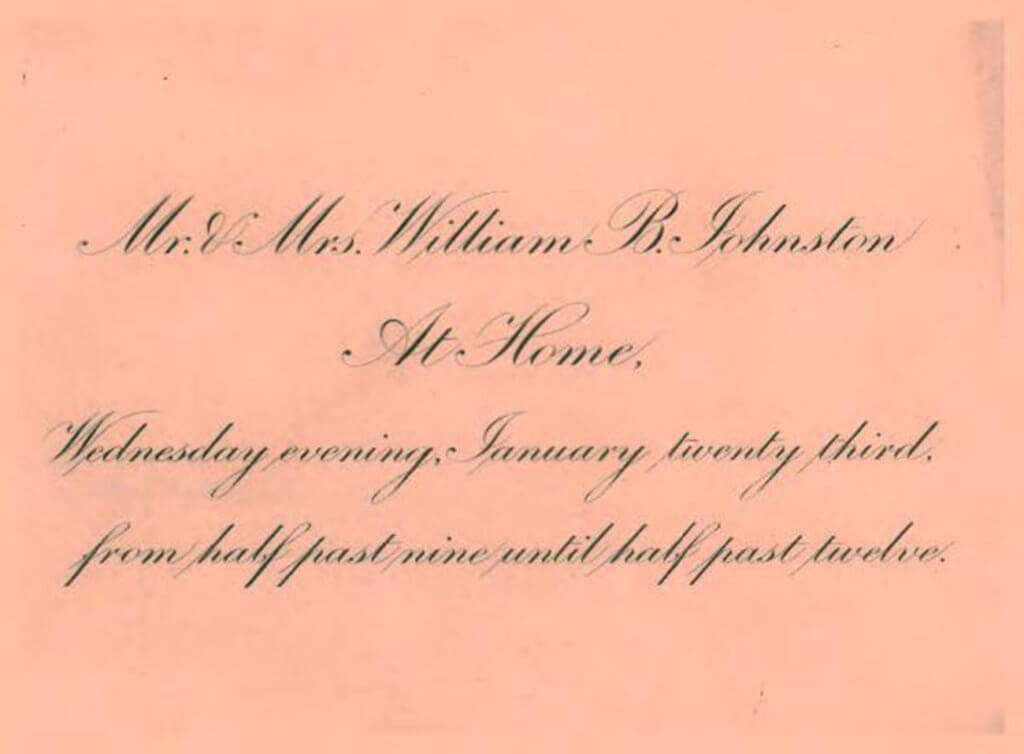 Mr. & Mrs. William B. Johnston
At Home,
Wednesday evening, January twenty third,
from half past nine until half past twelve.